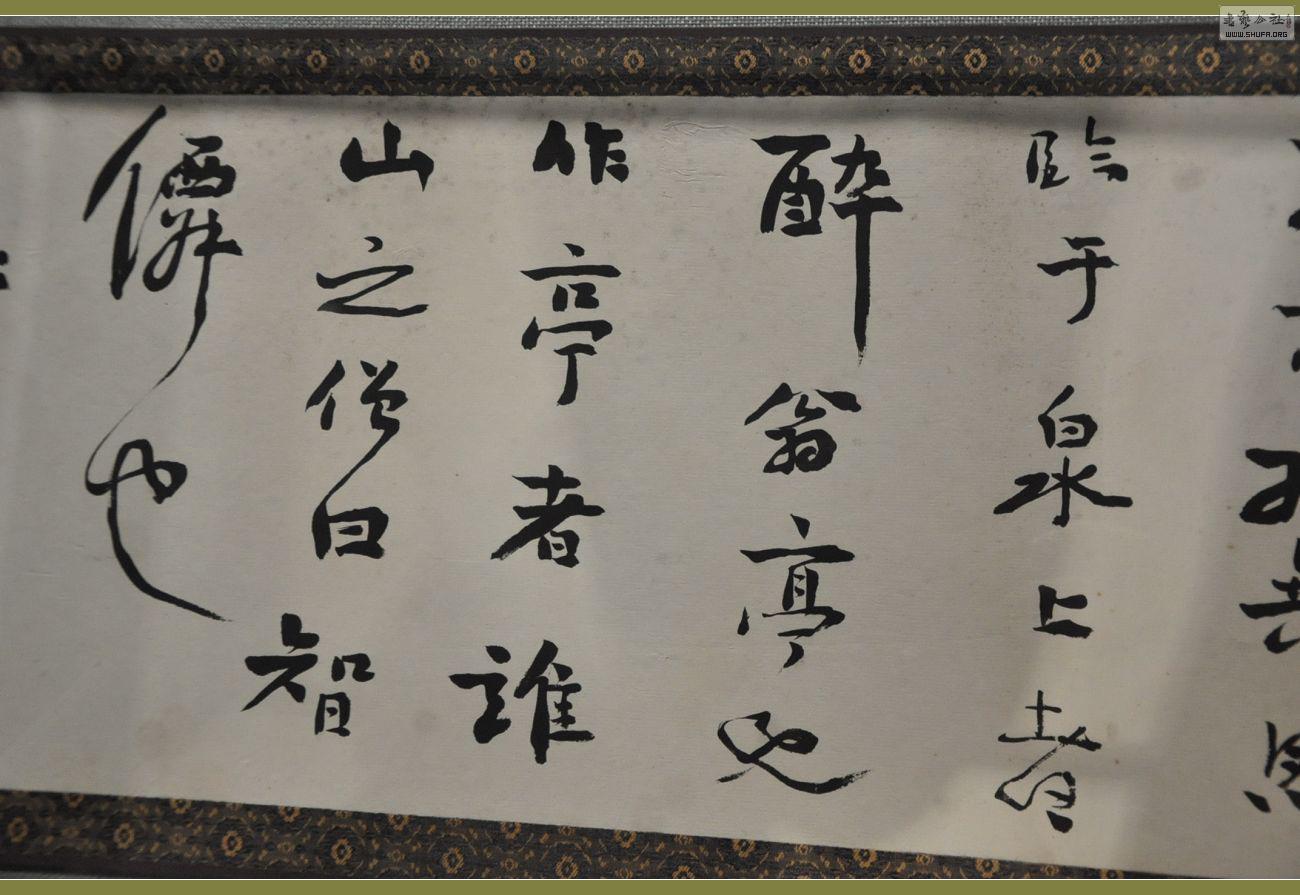 臨于泉上者
醉翁亭也
作亭者誰
山之僧曰智
僊也
WWW.SHUFA.ORG